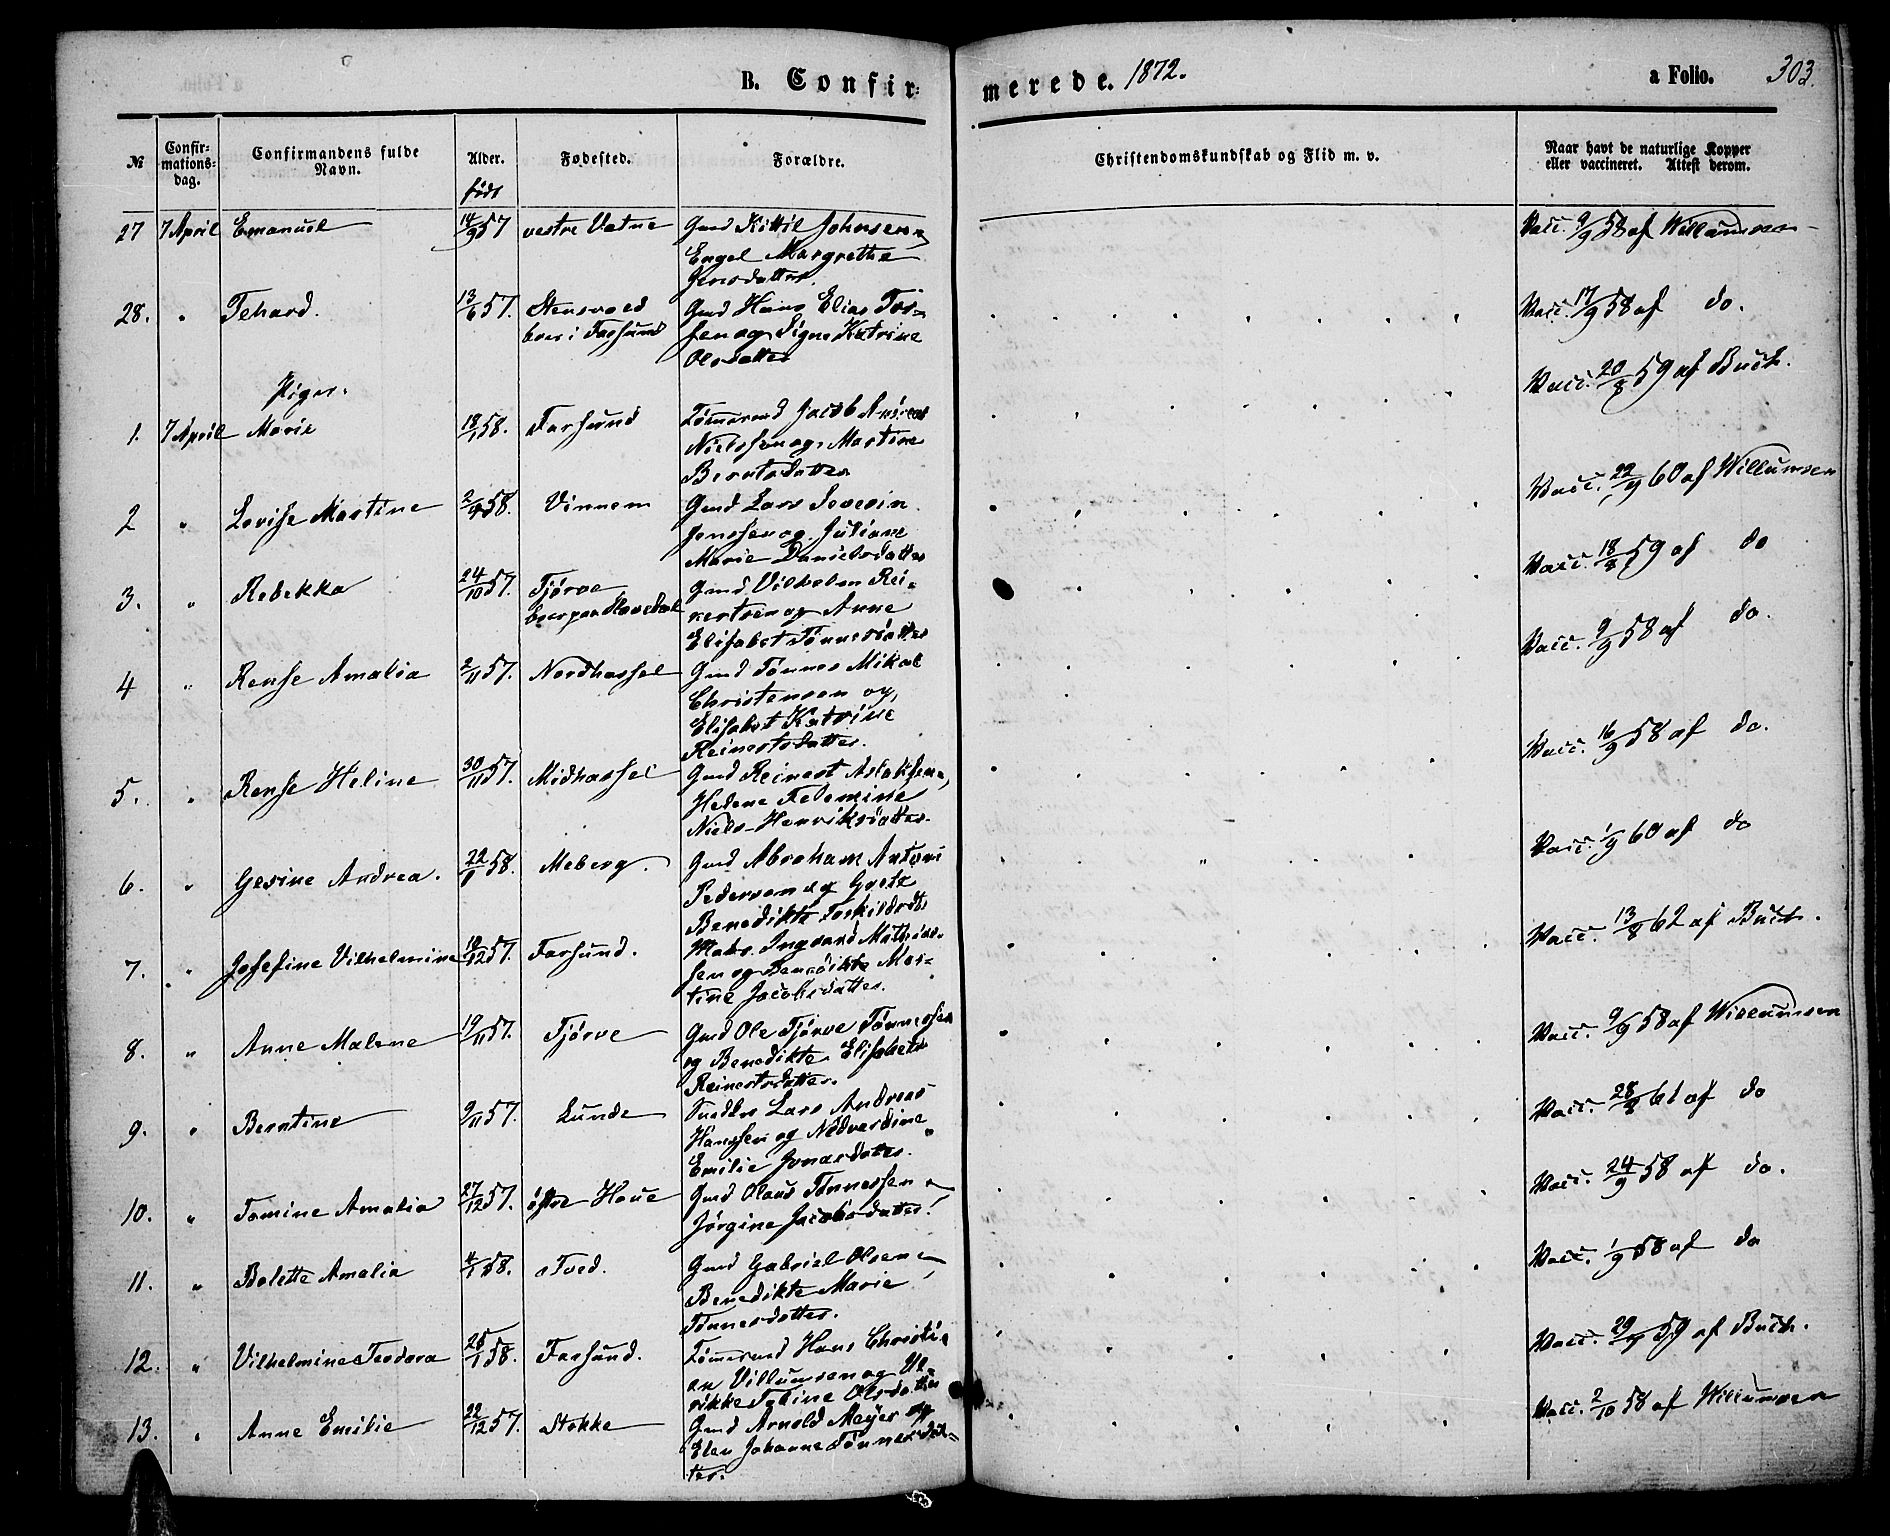 B. Confir-
merede. 1872.
a Folio. 303.
№
Confir-
mations-
dag.
Confirmandens fulde
Navn.
Alder.
født
Fødested.
Forældre.
Christendomskundskab og Flid m. v.
Naar havt de naturlige Kopper
eller vaccineret. Attest derom.
27 7 April Emanuel 14/9 57 vestre Vatne Gmd Kittil Johnsen
Engel Margrethe
Jensdatter.
Vacc. 9/9 58 af Willumsen
28. " Tehard. 13/6 57. Stensvold
boer i Farsund
Gmd Hans Elias Tor-
sen og Signe Katrine
Olsdatter
Vacc. 17/9 58 af do.
Piger.
1. 7 April Marie 18/1 58. Farsund Tømmermd Jacob Andreas
Nielssen og Martine
Berntsdatter
Vacc. 20/8 59 af Buch.
2 " Lovise Martine 58. Vinnem Gmd Lars Severin
Jenssen og Juliane
Marie Danielsdatter
Vacc. 22/9 60 af Willumsen
3. " Rebekka 24/10 57. Tjørve
boer paa
Gmd Vilhelm Rei-
nertsen og Anne
Elisabet Tønnesdatter
Vacc. 18/8 59 af do
4 " Rense Amalia 2/11 57. Nordhassel Gmd Tønnes Mikal
Christensen og
Elisabet Katrine
Reinertsdatter.
Vacc. 9/9 58 af do.
5. " Rense Heline 30/11 57. Midhassel Gmd Reinert Aslaksen,
Helene Felemine
Niels-Henriksdatter.
Vacc. 16/9 58 af do.
6. " Gesine Andrea. 22/1 58. Meberg. Gmd Abraham Antoni
Pedersen og Grete
Benedikte Torkildsdtr
Vacc. 1/9 60 af do
7. " Josefine Vilhelmine 18/12 57. Farsund. Matr. Ingvard Mathias-
sen og Benedikte Mar-
tine Jacobsdatter.
Vacc. 13/8 62 af Buch.
8. " Anne Malene 19/11 57. Tjørve Gmd Ole Tjørve Tønnessen
og Benedikte Elisabeth
Reinertsdatter.
Vacc. 9/9 58 af Willumsen
9. " Berntine 9/11 57. Lunde Snedker Lars Andreas
Hanssen og Nedverdine
Emilie Jonasdatter.
Vacc. 28/8 61 af do
10. " Tomine Amalia 27/12 57. østre Houe Gmd Olaus Tønnessen
Jørgine Jacobsdatter.
Vacc. 24/9 58 af do.
11. " Bolette Amalia 4/1 58. Tved. Gmd Gabriel Olsen
Benedikte Marie
Tønnesdatter.
Vacc. 1/9 58 af do
12. " Vilhelmine Teodora 25/1 58. Farsund. Tømmermd Hans Christi-
an Villumsen og Ul-
rikke Tobine Olsdatter
Vacc. 29/9 59 af Buch.
13. " Anne Emilie 22/12 57. Stokke Gmd Arnold Meyer og
Elen Johanne Tønnesdat-
ter.
Vacc. 2/10 58 af Willumsen